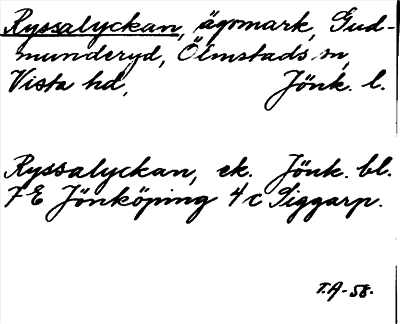 Ryssalyckan, ägomark, Gud-
munderyd, Ölmstads sn,
Vista hd, Jönk. l.
Ryssalyckan, ek. Jönk. bl.
7 E Jönköping 4 c Siggarp.
T.A-58.